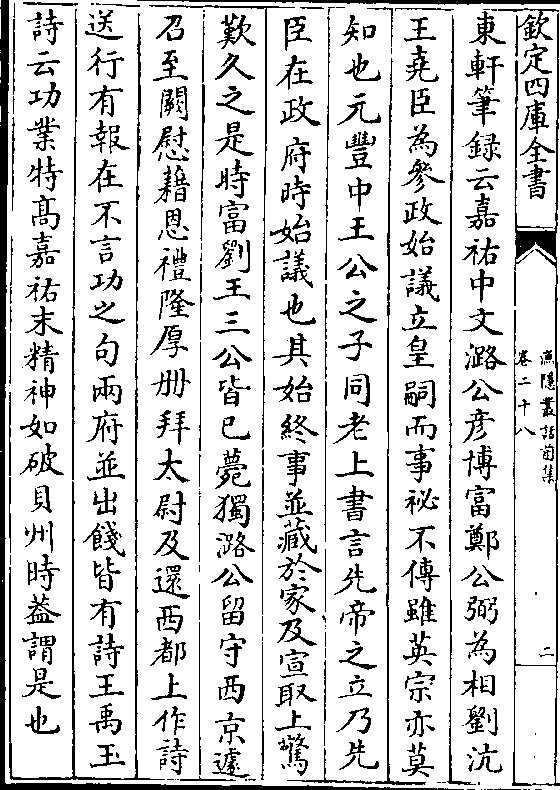 欽定四庫全書
漁隱叢話前集
卷二十八
二
東軒筆録云嘉祐中文潞公彦博富鄭公弼為相劉沆
王堯臣為參政始議立皇嗣而事祕不傳雖英宗亦莫
知也元豐中王公之子同老上書言先帝之立乃先
臣在政府時始議也其始終事並藏於家及宣取上驚
歎久之是時富劉王三公皆已薨獨潞公留守西京遽
召至闕慰藉恩禮隆厚册拜太尉及還西都上作詩
送行有報在不言功之句兩府並出餞皆有詩王禹玉
詩云功業特髙嘉祐末精神如破貝州時葢謂是也